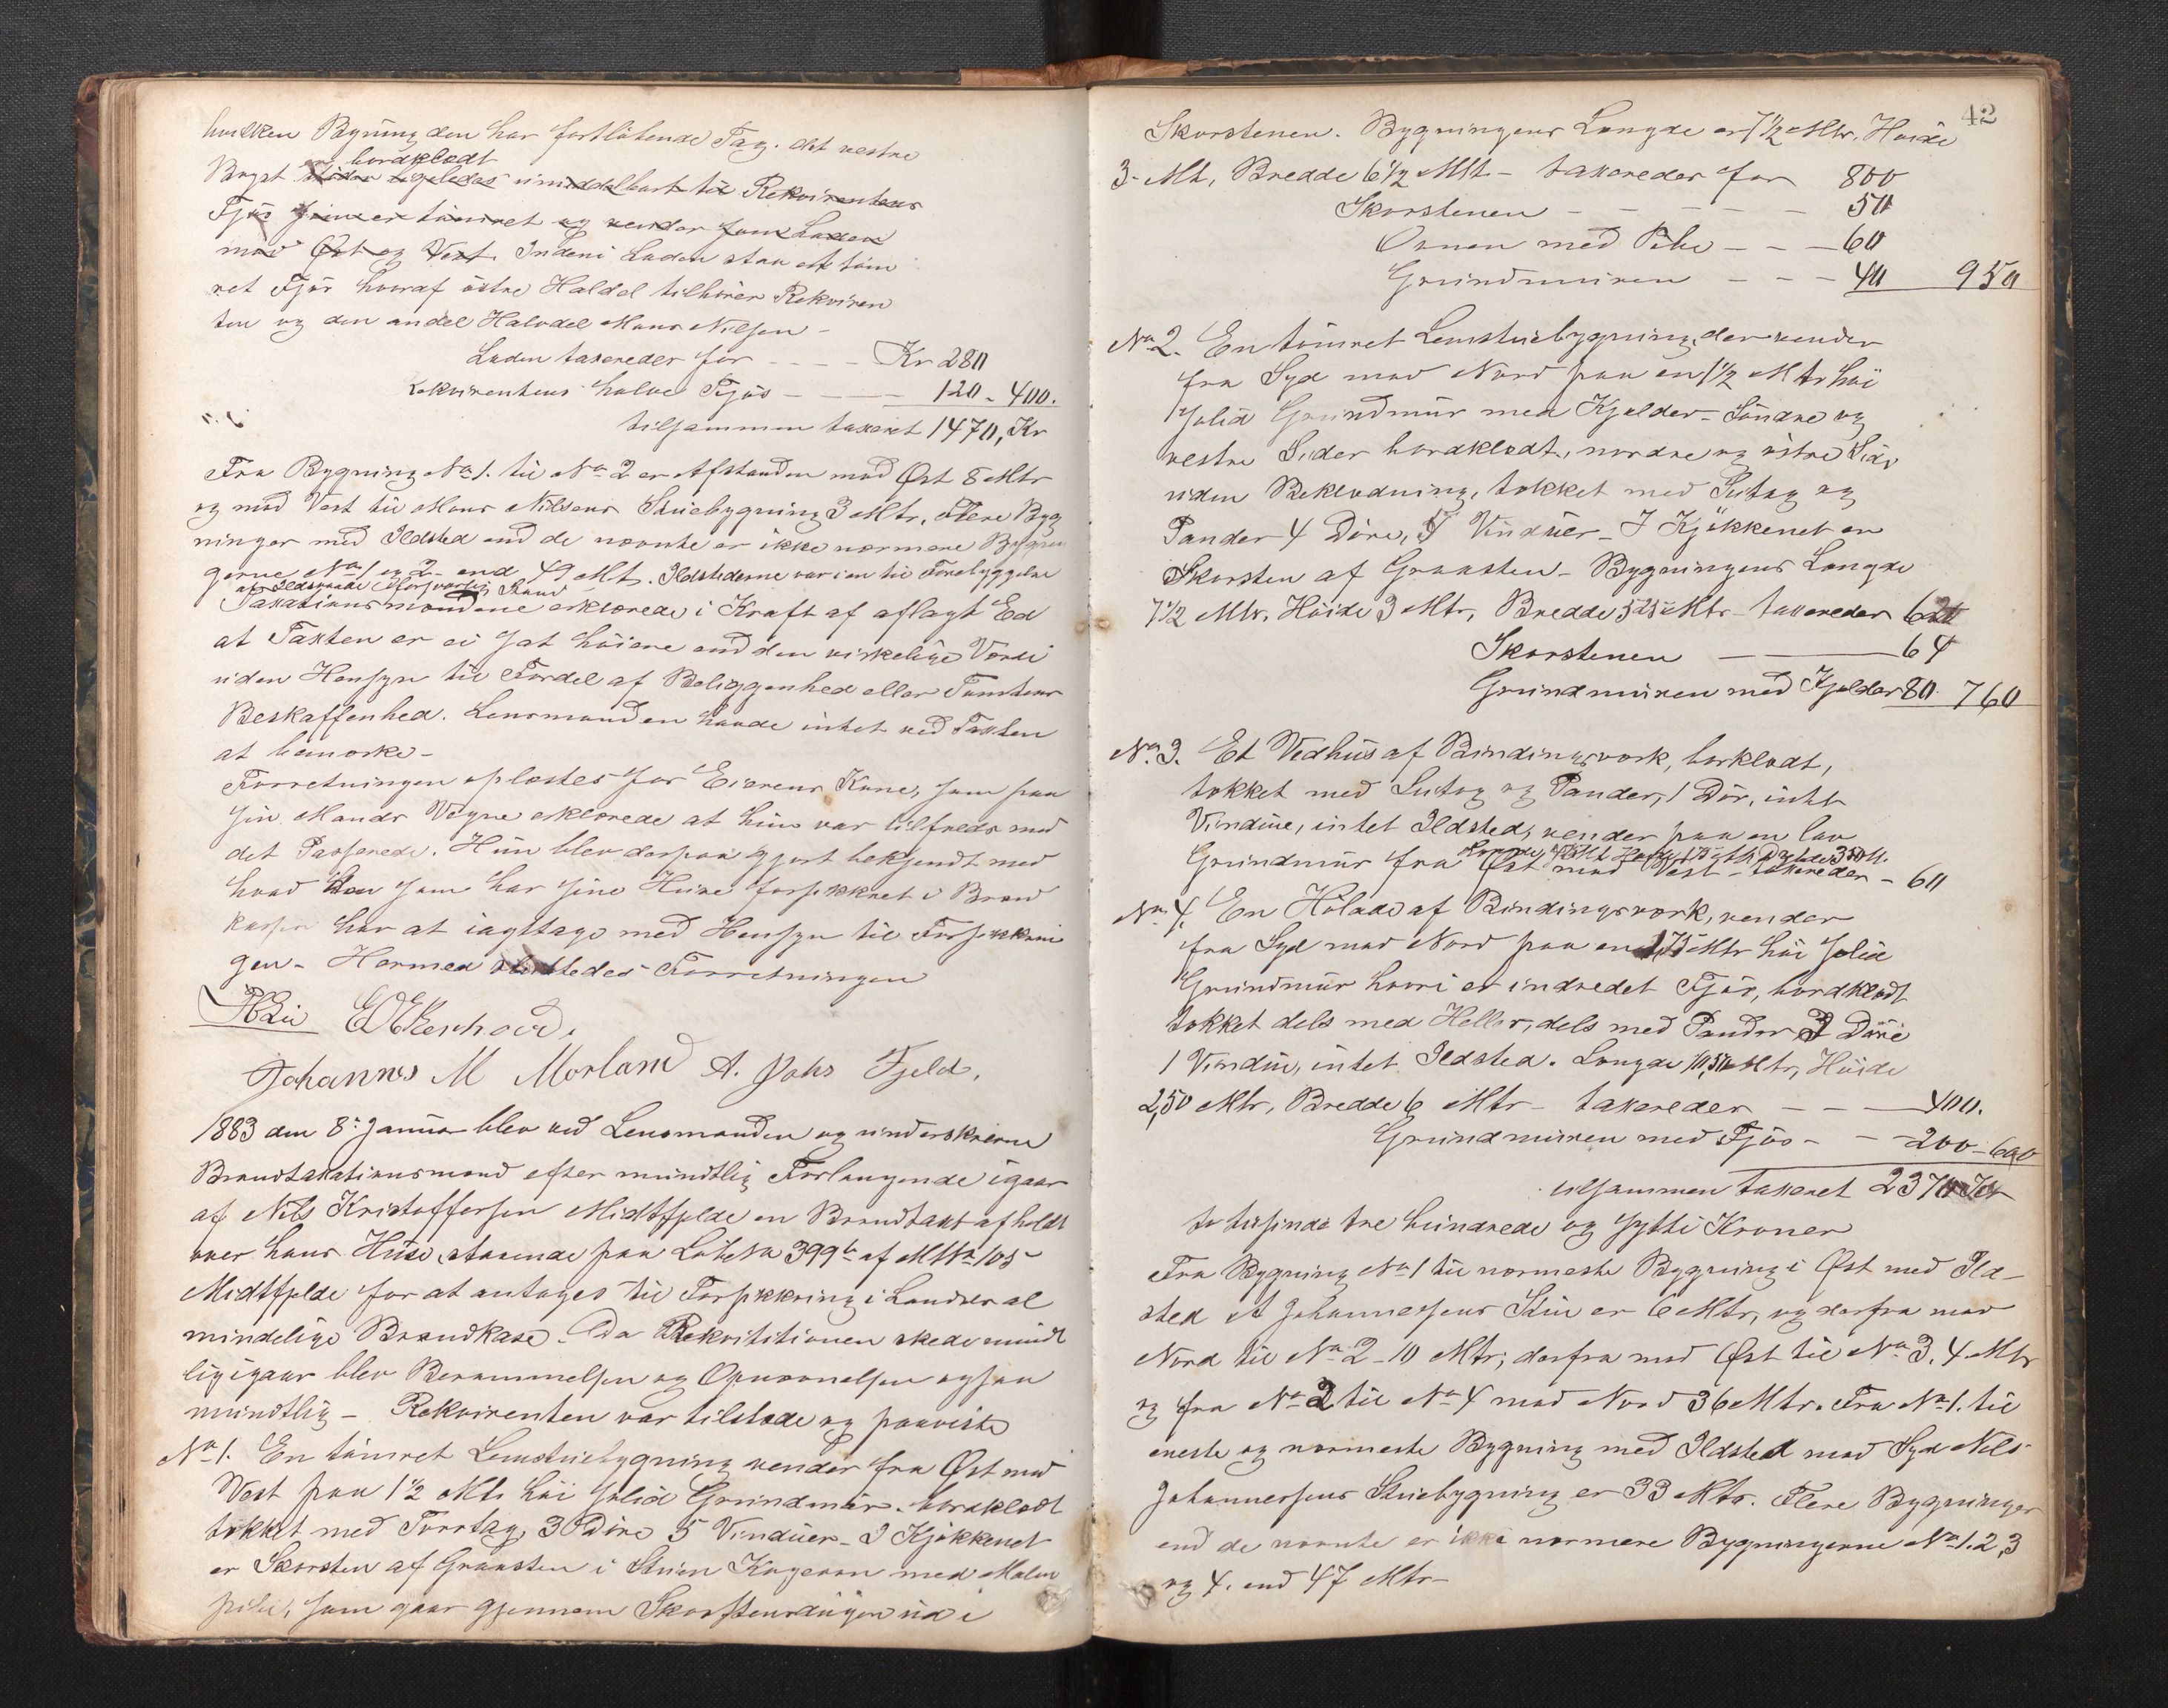 hvilken Bygning den har fortløbende Tag. det vestre
er bordklædt
Bryst støder ligeledes umiddelbart til Rekvirentens
Fjøs som er tømret og vender som Laden
mod Øst og Vest. Indeni Laden staa et töm
ret Fjös hvoraf östre Haldel tilhörer Rekviren
ten og den andel Halvdel Mons Nilsen –
Laden taxeredes for - - - - Kr 280
Rekvirentens halve Fjös - - - 120 - 400.
tilsammen taxeret 1470, Kr
Fra Bygning No 1. til No 2 er Afstanden mod Øst 8 Mtr
og mod Vest til Mons Nilsens Stuebygning 3 Mtr. Flere Byg
ninger med Ildsted end de nævnte er ikke nærmere Bygnin
gerne No 1 og 2 end 49 Mtr. Ildstederne var i en til Forebyggelse
af Ildsvaade forsvarlig Stand
Taxationsmændene erklærede i Kraft af aflagt Ed
at Taxten er ei sat höiere end den virkelige Værdi
uden Hensyn til Fordel af Beliggenhed eller Tomtens
Beskaffenhed. Lensmanden havde intet ved Taxten
at bemærke –
Forretningen oplæstes for Eierens Kone, som paa
sin Mands Vegne erklærede at hun var tilfreds med
det Passerede. Hun blev derpaa gjort bekjendt med
hvad den som har sine Huse forsikkret i Brand
kassen har at iagttage med Hensyn til Forsikkrin
gen – Hermed sluttedes Forretningen
Johannes M Morland A. Johs Fjeld.
1883 den 8: Januar blev ved Lensmanden og underskrevne
Brandtaxationsmænd efter mundtlig Forlangende igaar
af Nils Kristoffersen Midtfjelde en Brandtaxt afholdt
over hans Huse staaende paa Løbe No 399b af Mt No 105
Midtfjelde for at antages til Forsikkring i Landets al
mindelige Brandkasse. Da Rekvisitionen skede mundt
lig igaar blev Berammelsen og Opnævnelsen ogsaa
mundtlig – Rekvirenten var tilstede og paaviste
No 1. En tömret Lemstuebygning vender fra Øst mod
Vest paa 1½ Mtr höi solid Grundmur. bordklædt
tækket med Torvtag, 3 Döre 5 Vinduer – I Kjökkenet
er Skorsten af Graasten i Stuen Kogeovn med Malm
pibe, som gaar gjennem Skorstensdugen ud i
42
Skorstenen. Bygningens Længde er 7½ Mtr. Höide
3 Mt, Bredde 6½ Mtr – taxeredes for 800
Skorstenen - - - - - 50
Ovnen med Pibe - - - 60
Grundmuren - - - 40 950
No 2. En tömret Lemstuebygning, der vender
fra Syd mod Nord paa en 1½ Mtr höi
solid Grundmur med Kjelder – Söndre og
vestre Sider bordklædt, nordre og östre Side
uden Beklædning, tækket med Sutag og
Pander 4 Döre, 5 Vinduer – I Kjökkenet en
Skorsten af Graasten – Bygningens Længde
7½ Mtr. Höide 3 Mtr, Bredde 5,25 Mtr – taxeredes 620
Skorstenen ——— 60
Grundmuren med Kjelder 80. 760
No. 3. Et Vedhus af Bindingsværk, borklædt,
tækket med Sutag og Pander, 1 Dör, intet
Vindue, intet Ildsted, vender paa en lav
Grundmur fra Øst mod Vest – taxeredes – 60
No 4. En Hölade af Bindingsværk, vender
fra Syd mod Nord paa en 1,75 Mtr höi solid
Grundmur hvori er indredet Fjös, bordklædt
tækket dels med Heller, dels med Pander 3 Döre
1 Vindue, intet Ildsted. Længde 10,50 Mtr, Höide
2,50 Mtr, Bredde 6 Mtr – taxeredes - - - 400.
Grundmuren med Fjös - - - 200 - 600
tilsammen taxeret 2370 Kr
to tusinde tre hundrede og sytti Kroner
Fra Bygning No 1 til nærmeste Bygning i Øst med Ild-
sted A Johannessens Stue er 6 Mtr, og derfra mod
Nord til No 2 – 10 Mtr; derfra mod Øst til No 3. 4 Mtr
og fra No 2 til No 4 mod Nord 36 Mtr. Fra No 1. til
eneste og nærmeste Bygning med Ildsted mod Syd Nils
Johannessens Stuebygning er 33 Mtr. Flere Bygninger
end de nævnte er ikke nærmere Bygningerne No 1. 2, 3
og 4. end 47 Mtr –